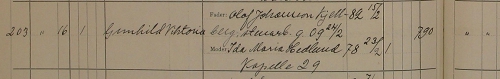 Fader: Olof Johansson Kjell- 82 15/2
203 " 16 1 Gunhild Viktoria berg, stenarb. g. 09 24/2 790 " "
Moder: Ida Maria Hedlund 78 23/2 1
Kapelle 29